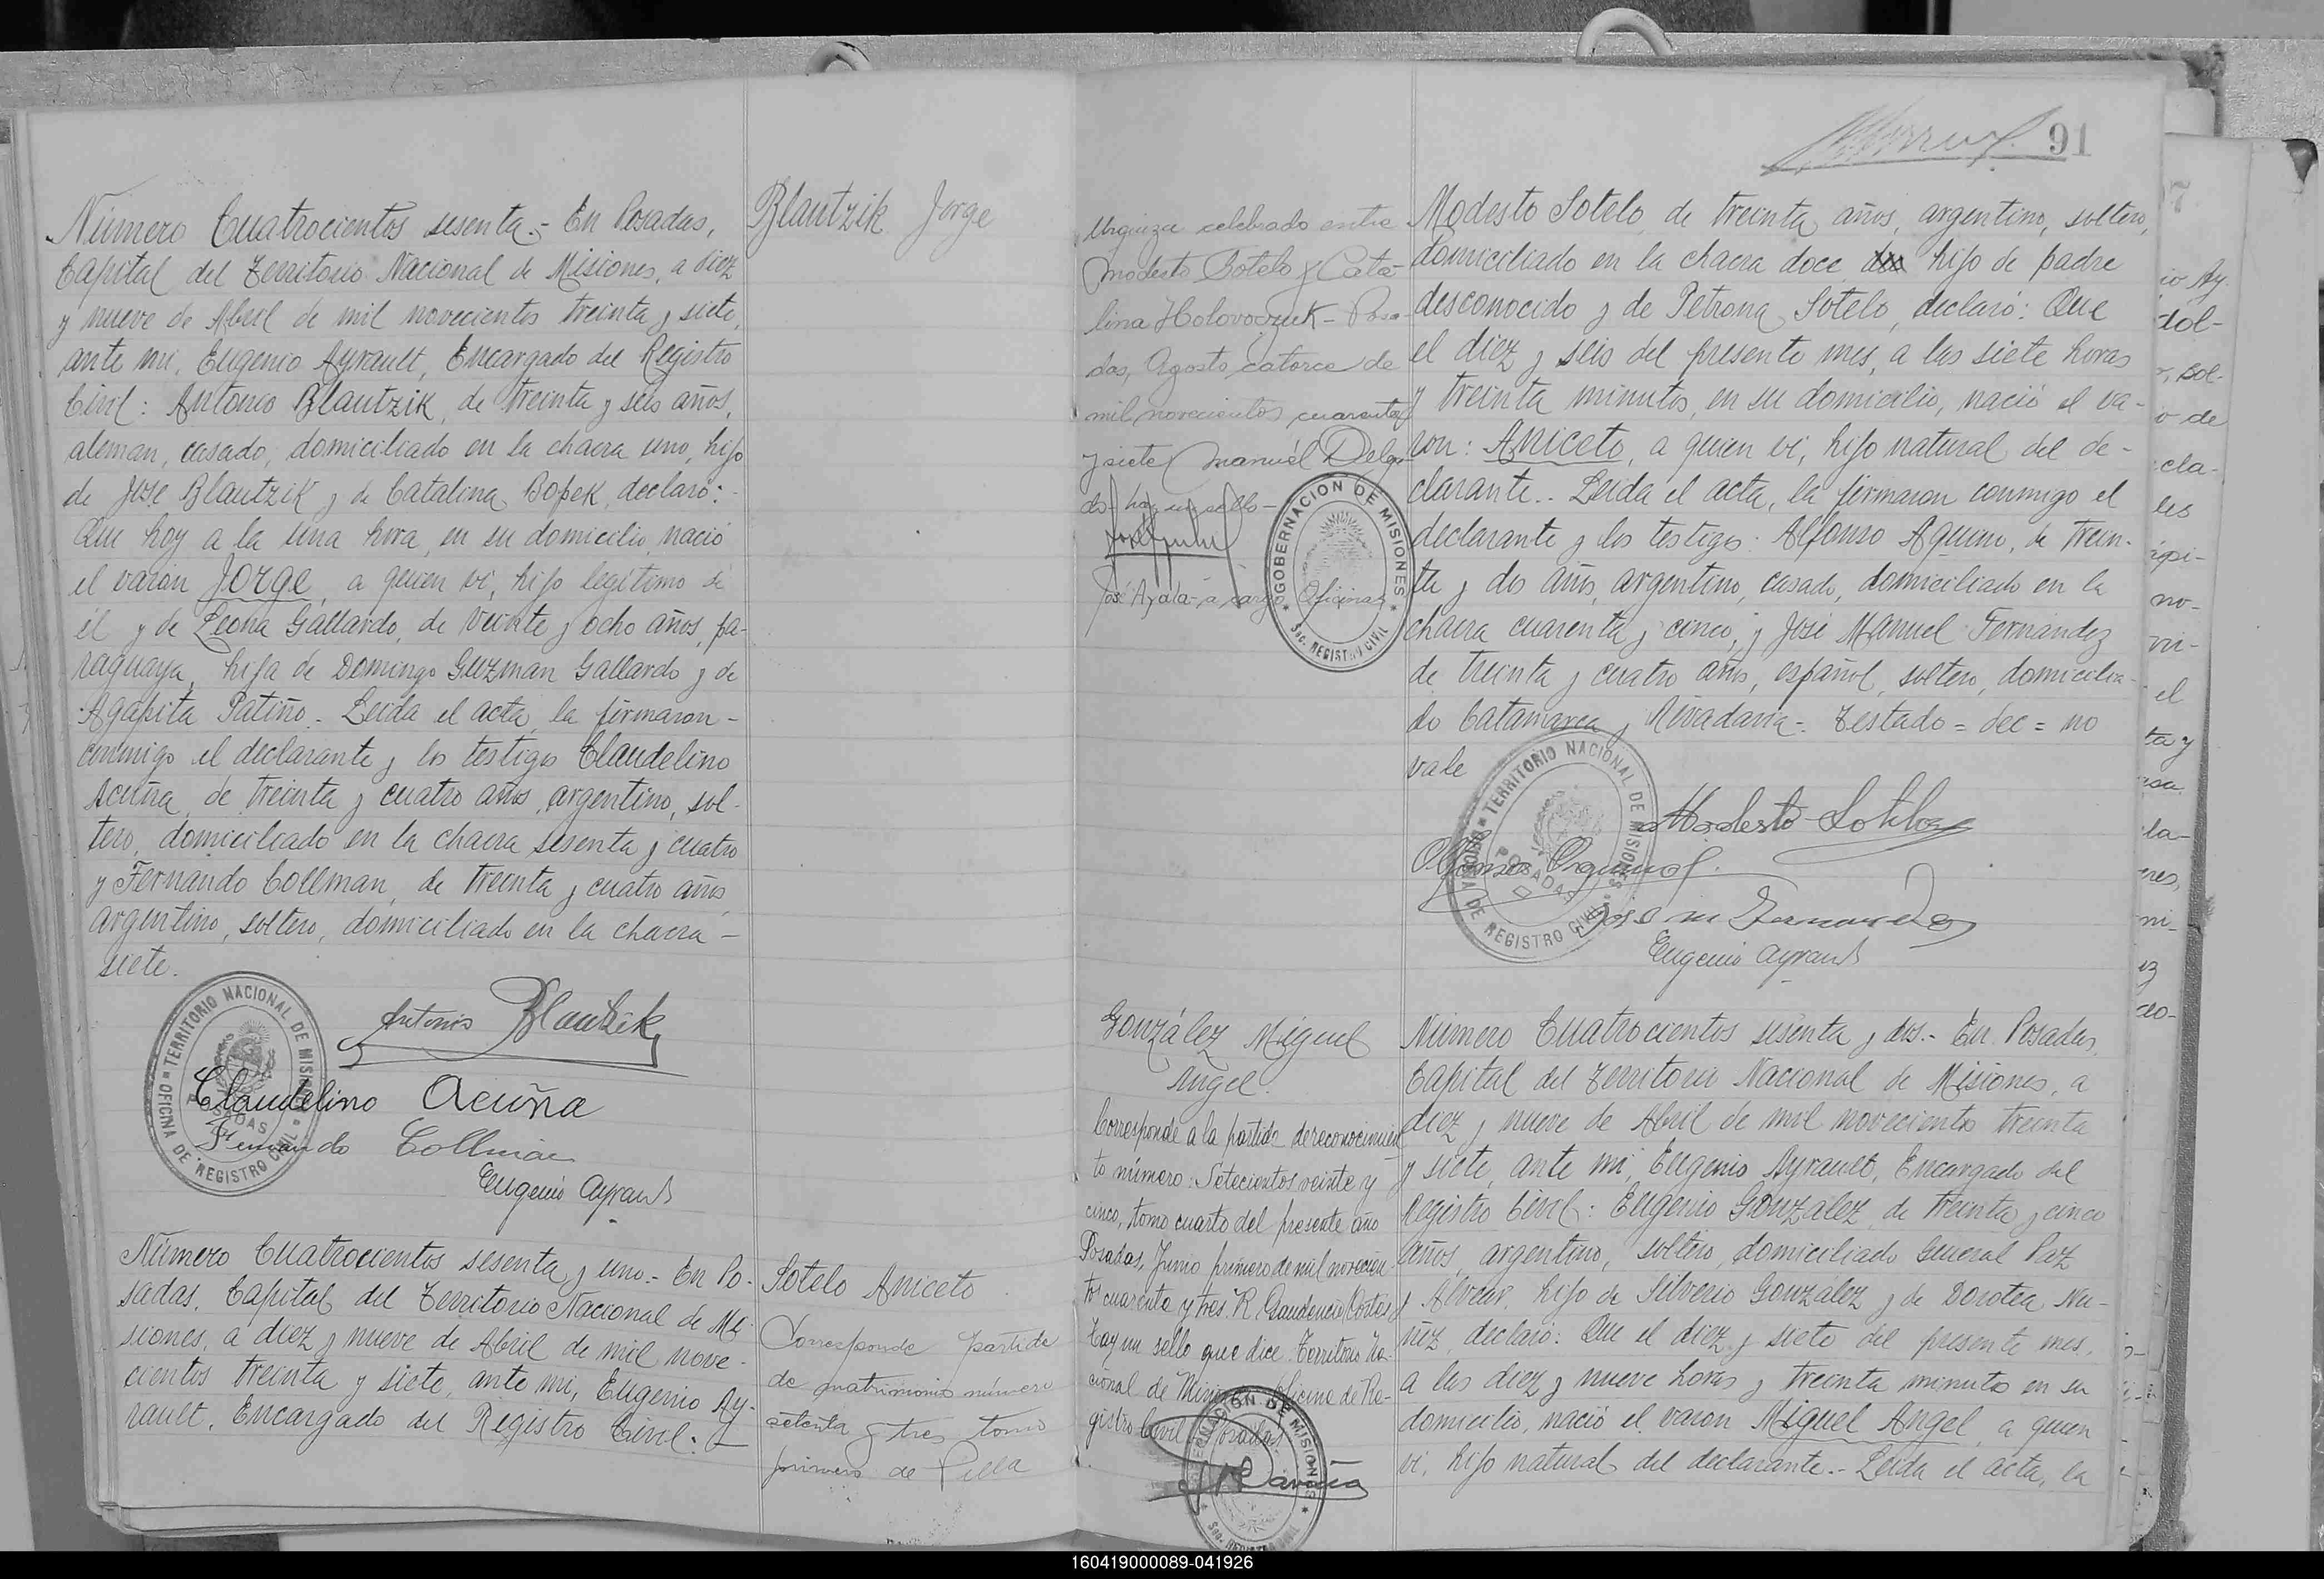 Número Cuatrocientos sesenta.- En Posadas,
Capital del Territorio Nacional de Misiones, a diez
y nueve de Abril de mil novecientos treinta y siete,
ante mi, Eugenio Ayrault, Encargado del Registro
Civil: Antonio Blautzik, de treinta y seis años,
aleman, casado, domiciliado en la chacra uno, hijo
de José Blautzik y de Catalina Bopek, declaró:
Que hoy a la una hora, en su domicilio, nació
el varón Jorge, a quien vi, hijo legítimo de
él y de Leona Gallardo, de veinte y ocho años, pa-
raguaya, hija de Domingo Guzman Gallardo y de
Agapita Patiño.- Leida el acta, la firmaron-
conmigo el declarante y los testigos Claudelino
Acuña, de treinta y cuatro años, argentino, sol-
tero, domiciliado en la chacra sesenta y cuatro
y Fernando Collman, de treinta y cuatro años
argentino, soltero, domiciliado en la chacra -
siete.
Antonio Blautzik
Claudelino Acuña
Fernando Collman
Eugenio Ayrault
OFICINA DE REGISTRO CIVIL = TERRITORIO NACIONAL DE MISIONES =
POSADAS
Blautzik Jorge
Número Cuatrocientos sesenta y uno.- En Po-
sadas, Capital del Territorio Nacional de Mi-
siones, a diez y nueve de Abril de mil nove-
cientos treinta y siete, ante mi, Eugenio Ay-
rault, Encargado del Registro Civil: -
Sotelo Aniceto
Corresponde partida
de matrimonio número
setenta y tres tomo
primero de Villa
91
Urquiza celebrado entre
Modesto Sotelo y Cata-
lina Holovoczuk - Posa-
das, Agosto catorce de
mil novecientos cuarenta
y siete Manuel Delga-
do - hay un sello -
José Ayala - a cargo Oficina
GOBERNACION DE MISIONES
Sec. REGISTRO CIVIL
Modesto Sotelo, de treinta años, argentino, soltero,
domiciliado en la chacra doce, hijo de padre
desconocido y de Petrona Sotelo, declaró: Que
el diez y seis del presente mes, a las siete horas
y treinta minutos, en su domicilio, nació el va-
ron: Aniceto, a quien vi, hijo natural del de-
clarante.- Leida el acta, la firmaron conmigo el
declarante y los testigos: Alfonso Aquino, de trein-
ta y dos años, argentino, casado, domiciliado en la
chacra cuarenta y cinco, y José Manuel Fernandez
de treinta y cuatro años, español, soltero, domicilia-
do Catamarca y Rivadavia.- Testado = dec = no
vale
Modesto Sotelo
Alfonso Aquino
Jose M Fernandez
Eugenio Ayrault
OFICINA DE REGISTRO CIVIL = TERRITORIO NACIONAL DE MISIONES =
POSADAS
González Miguel
Angel.
Corresponde a la partida de reconocimien
to número: Setecientos veinte y
cinco, tomo cuarto del presente año
Posadas, Junio primero de mil novecien
tos cuarenta y tres. R. Gaudencio Cortes
Hay un sello que dice: Territorio Na-
cional de Misiones Oficina de Re-
gistro Civil Posadas
GOBERNACION DE MISIONES
Sec. REGISTRO CIVIL
Número Cuatrocientos sesenta y dos.- En Posadas,
Capital del Territorio Nacional de Misiones, a
diez y nueve de Abril de mil novecientos treinta
y siete, ante mi, Eugenio Ayrault, Encargado del
Registro Civil: Eugenio González, de treinta y cinco
años, argentino, soltero, domiciliado General Paz
y Alvear, hijo de Silverio González y de Dorotea Nu-
ñez, declaró: Que el diez y siete del presente mes,
a las diez y nueve horas y treinta minutos en su
domicilio, nació el varon Miguel Angel, a quien
vi, hijo natural del declarante.- Leida el acta, la
160419000089-041926